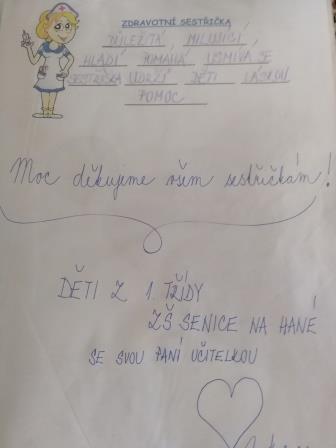 ZDRAVOTNÍ SESTŘIČKA
DŮLEŽITÁ, MILUJÍCÍ,
HLADÍ POMÁHÁ USMÍVÁ SE
SESTŘIČKA UDRŽÍ DĚTI LÁSKOU
POMOC
Moc děkujeme všem sestřičkám!
DĚTI Z 1. TŘÍDY
ZŠ SENICE NA HANÉ
SE SVOU PANÍ UČITELKOU